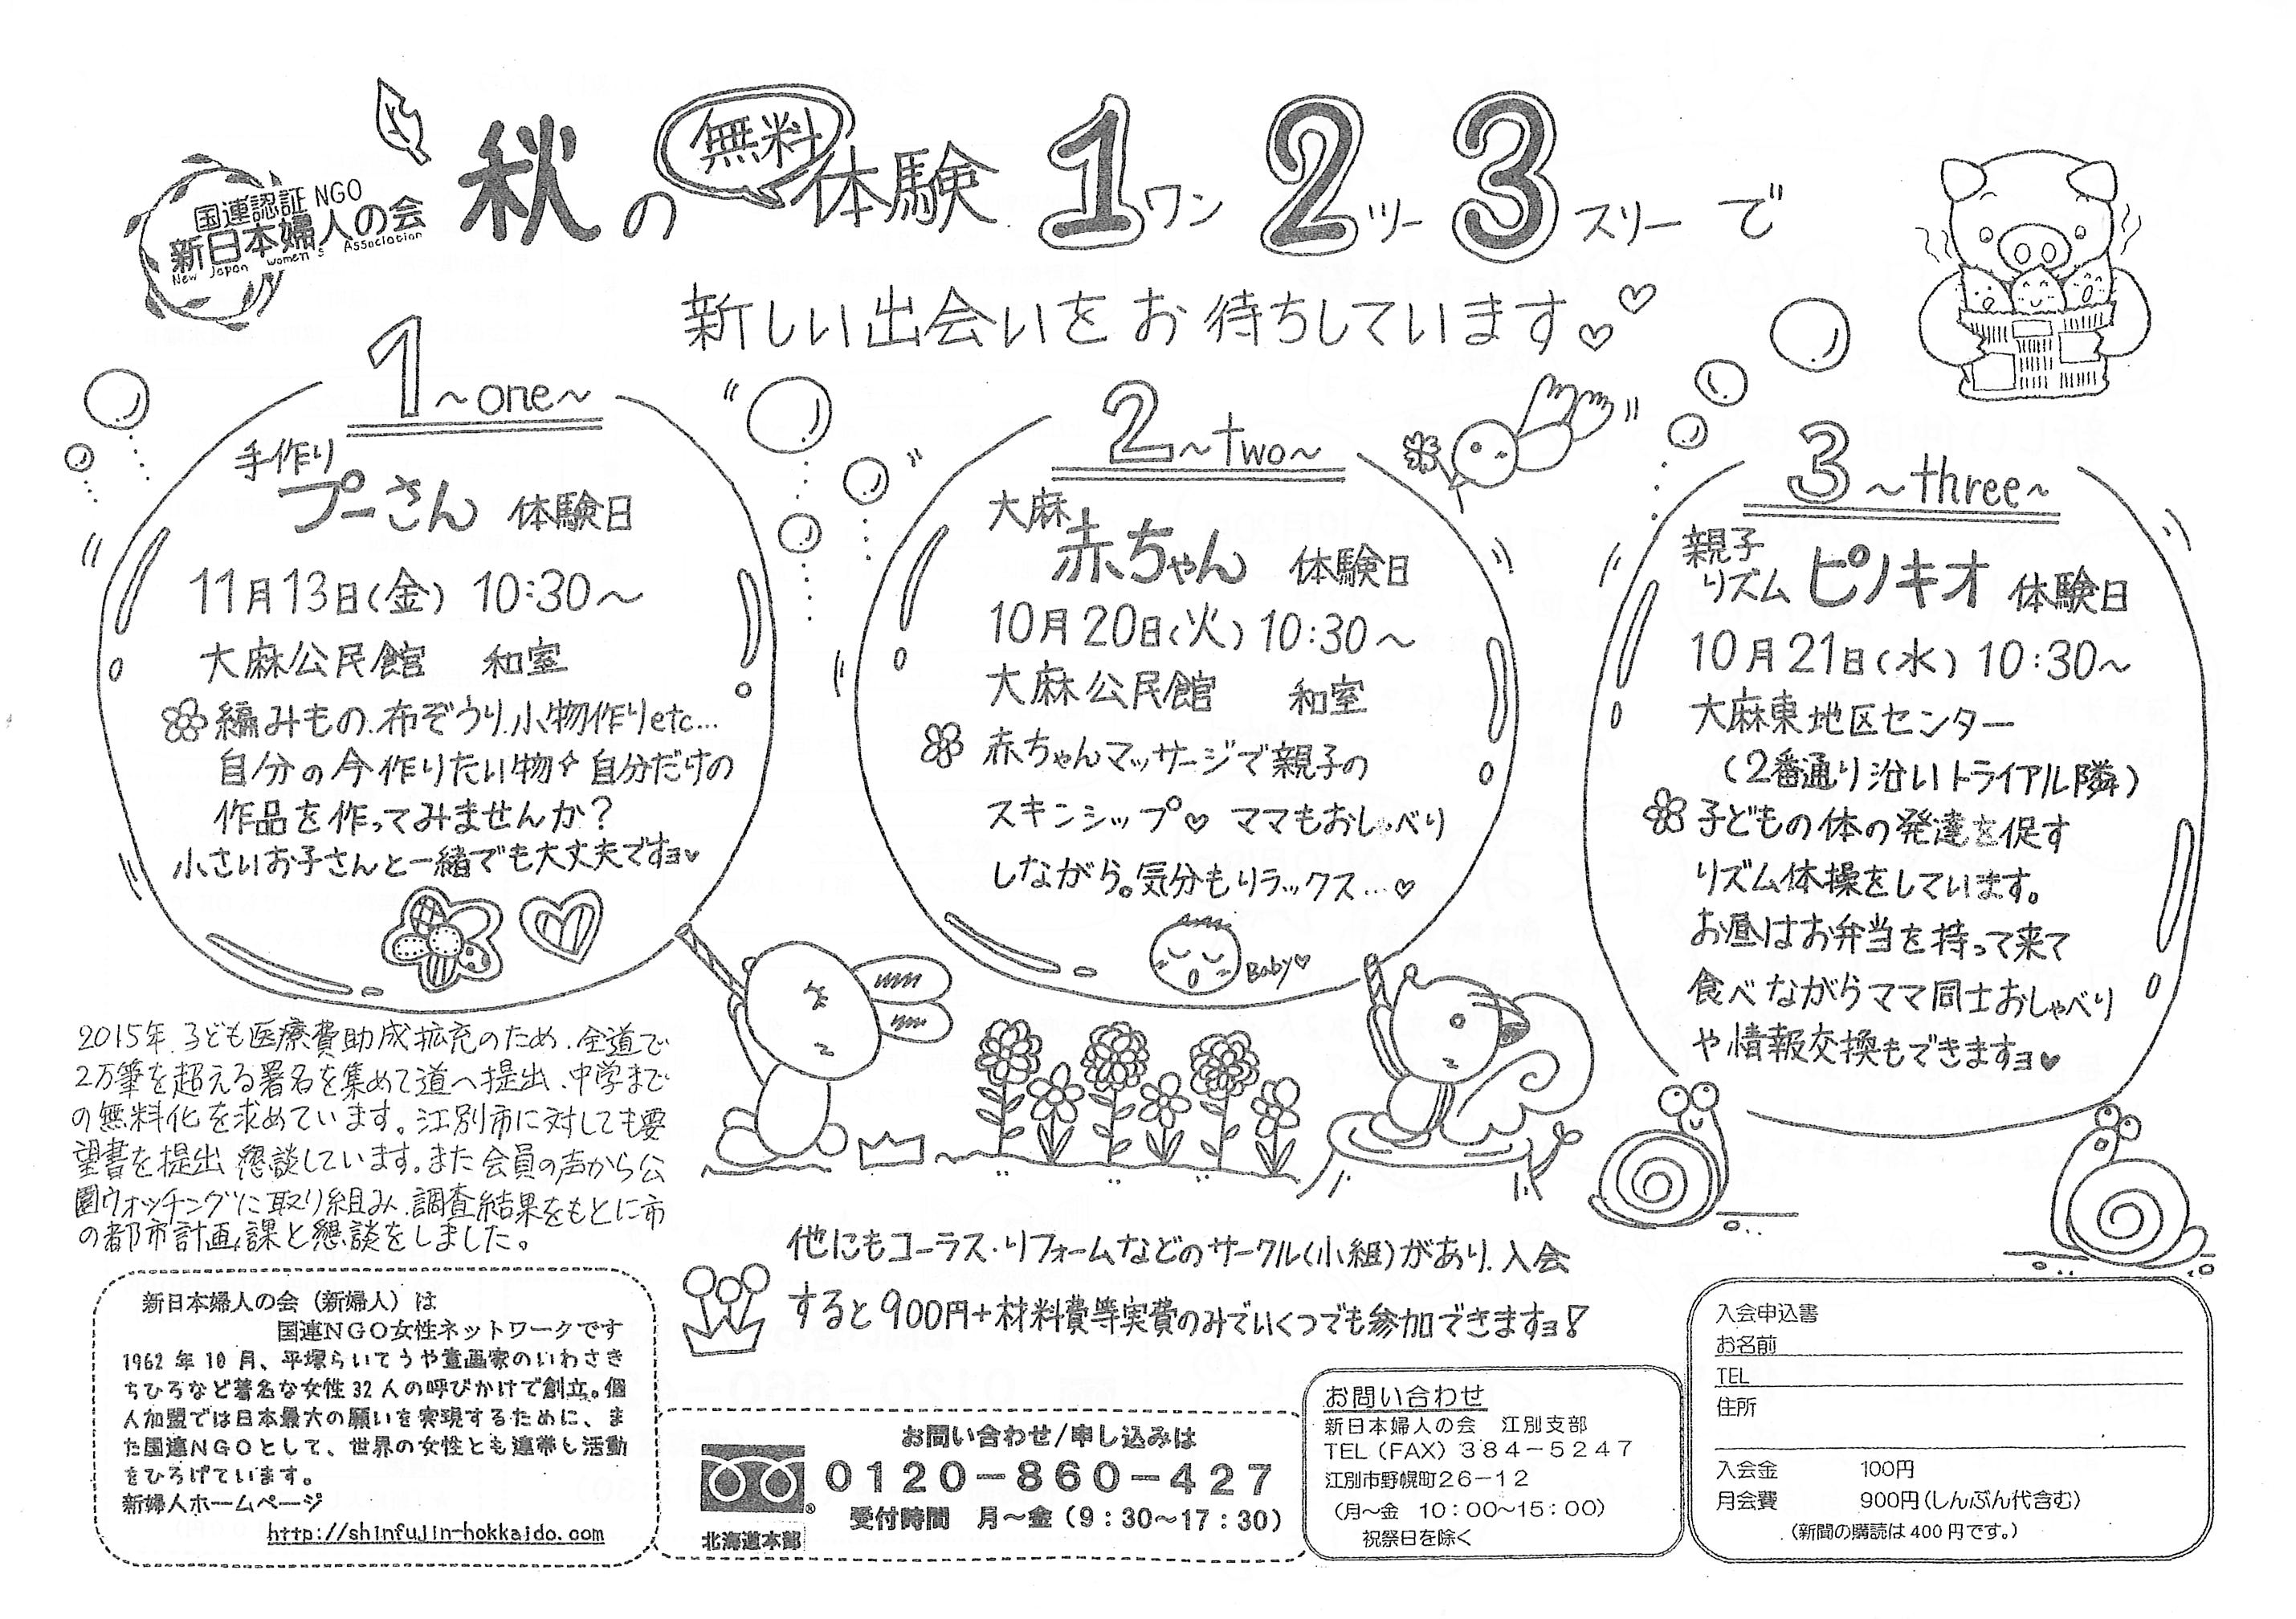 国連認証NGO
新日本婦人の会
New Japan Women's Association
秋の無料体験 1ワン 2ツー 3スリーで
新しい出会いをお待ちしています♡♡
1 ～one～
手作り
プーさん 体験日
11月13日(金) 10:30～
大麻公民館 和室
編みもの、布ぞうり、小物作りetc…
自分の今作りたい物 自分だけの
作品を作ってみませんか?
小さいお子さんと一緒でも大丈夫ですョ♥
2 ～two～
大麻
赤ちゃん 体験日
10月20日(火) 10:30～
大麻公民館 和室
赤ちゃんマッサージで親子の
スキンシップ♡ ママもおしゃべり
しながら。気分もリラックス…♡
Baby♡
3 ～three～
親子
リズム ピノキオ 体験日
10月21日(水) 10:30～
大麻東地区センター
(2番通り沿いトライアル隣)
子どもの体の発達を促す
リズム体操をしています。
お昼はお弁当を持って来て
食べながらママ同士おしゃべり
や情報交換もできますョ♥
2015年、子ども医療費助成拡充のため、全道で
2万筆を超える署名を集めて道へ提出、中学まで
の無料化を求めています。江別市に対しても要
望書を提出 懇談しています。また会員の声から公
園ウォッチングに取り組み、調査結果をもとに市
の都市計画課と懇談をしました。
他にもコーラス・リフォームなどのサークル(小組)があり、入会
すると900円+材料費等実費のみでいくつでも参加できますョ!
新日本婦人の会(新婦人)は
国連NGO女性ネットワークです
1962年10月、平塚らいてうや童画家のいわさき
ちひろなど著名な女性32人の呼びかけで創立。個
人加盟では日本最大の願いを実現するために、ま
た国連NGOとして、世界の女性とも連帯し活動
をひろげています。
新婦人ホームページ
http://shinfujin-hokkaido.com
お問い合わせ/申し込みは
0120-860-427
受付時間 月～金(9:30～17:30)
北海道本部
お問い合わせ
新日本婦人の会 江別支部
TEL(FAX)384-5247
江別市野幌町26-12
(月～金 10:00～15:00)
祝祭日を除く
入会申込書
お名前
TEL
住所
入会金 100円
月会費 900円(しんぶん代含む)
(新聞の購読は400円です。)